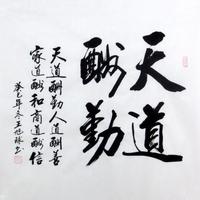 天道
酬勤
天道酬勤人道酬善
家道酬和商道酬信
癸巳年冬王旭书